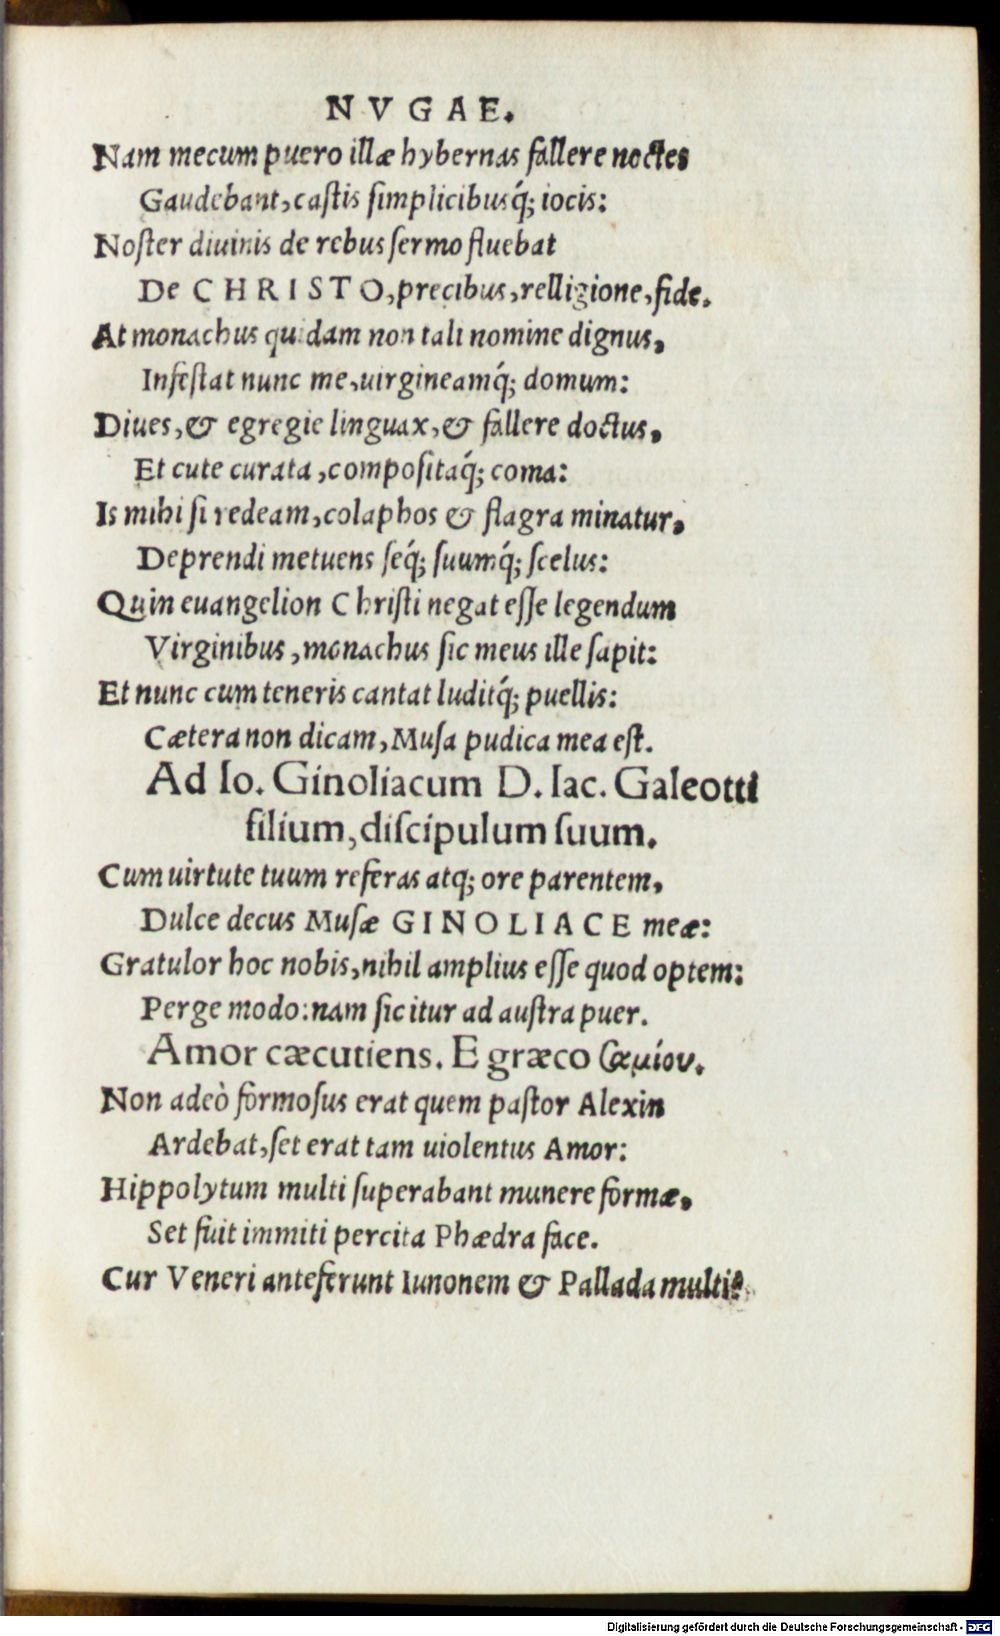 NVGAE.
Nam mecum puero illæ hybernas fallere noctes
Gaudebant, castis simplicibusq́; iocis:
Noster diuinis de rebus sermo fluebat
De CHRISTO, precibus, relligione, fide.
At monachus quidam non tali nomine dignus,
Infestat nunc me, uirgineamq́; domum:
Diues, & egregie linguax, & fallere doctus,
Et cute curata, compositaq́; coma:
Is mihi si redeam, colaphos & flagra minatur,
Deprendi metuens seq́; suumq́; scelus:
Quin euangelion Christi negat esse legendum
Virginibus, monachus sic meus ille sapit:
Et nunc cum teneris cantat luditq́; puellis:
Cætera non dicam, Musa pudica mea est.
Ad Io. Ginoliacum D. Iac. Galeotti
filium, discipulum suum.
Cum uirtute tuum referas atq; ore parentem,
Dulce decus Musæ GINOLIACE meæ:
Gratulor hoc nobis, nihil amplius esse quod optem:
Perge modo: nam sic itur ad austra puer.
Amor cæcutiens. E græco Σαμίου.
Non adeò formosus erat quem pastor Alexin
Ardebat, set erat tam uiolentus Amor:
Hippolytum multi superabant munere formæ,
Set fuit immiti percita Phædra face.
Cur Veneri anteferunt Iunonem & Pallada multi?
Digitalisierung gefördert durch die Deutsche Forschungsgemeinschaft - DFG